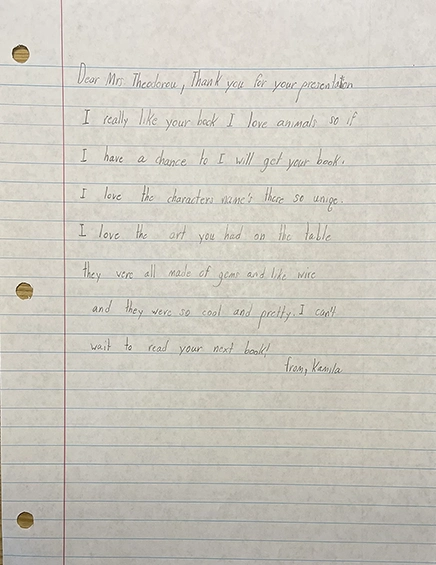 Dear Mrs Theodorou, Thank you for your presentation
I really like your book I love animals so if
I have a chance to I will get your book.
I love the characters name's there so uniqe.
I love the art you had on the table
they were all made of gems and like wire
and they were so cool and pretty. I can't
wait to read your next book!
from, Kamila